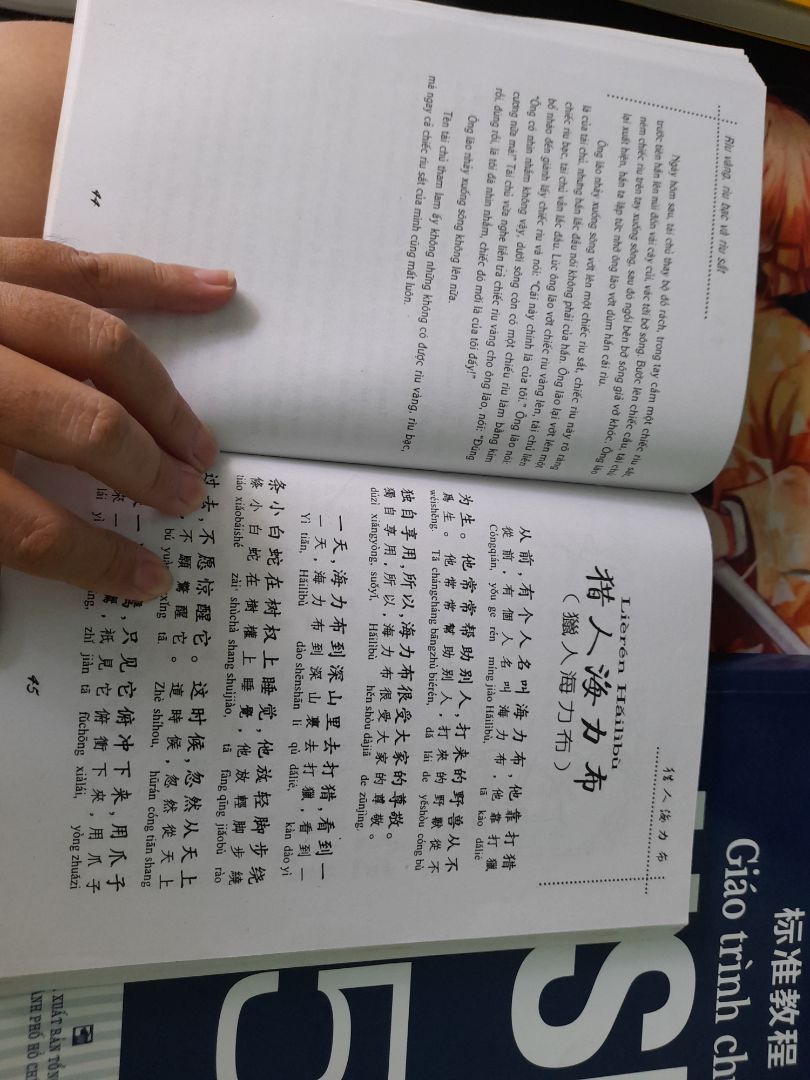 Rìu vàng, rìu bạc và rìu sắt
Ngày hôm sau, tài chủ thay bộ đồ rách, trong tay cầm một chiếc rìu sắt,
trước tiên hắn lên núi đốn vài cây củi, vác tới bờ sông. Bước lên chiếc cầu, tài chủ
ném chiếc rìu trên tay xuống sông, sau đó ngồi bên bờ sông giả vờ khóc. Ông lão
lại xuất hiện, hắn ta lập tức nhờ ông lão vớt dùm hắn cái rìu.
Ông lão nhảy xuống sông vớt lên một chiếc rìu sắt, chiếc rìu này rõ ràng
là của tài chủ, nhưng hắn lắc đầu nói không phải của hắn. Ông lão lại vớt lên một
chiếc rìu bạc, tài chủ vẫn lắc đầu. Lúc ông lão vớt chiếc rìu vàng lên, tài chủ liền
bổ nhào đến giành lấy chiếc rìu và nói: "Cái này chính là của tôi." Ông lão nói:
"Ông có nhìn nhầm không vậy, dưới sông còn có một chiếu rìu làm bằng kim
cương nữa mà!" Tài chủ vừa nghe liền trả chiếc rìu vàng cho ông lão, nói: "Đúng
rồi, đúng rồi, là tôi đã nhìn nhầm, chiếc đó mới là của tôi đấy!"
Ông lão nhảy xuống sông không lên nữa.
Tên tài chủ tham lam ấy không những không có được rìu vàng, rìu bạc,
mà ngay cả chiếc rìu sắt của mình cũng mất luôn.
44
猎人海力布
Lièrén Hǎilìbù
猎人海力布
(獵人海力布)
从前,有个人名叫海力布,他靠打猎
從前,有個人名叫海力布,他靠打獵
Cóngqián, yǒu ge rén míng jiào Hǎilìbù, tā kào dǎliè
为生。他常常帮助别人,打来的野兽从不
爲生。他常常幫助別人,打來的野獸從不
wéishēng. Tā chángcháng bāngzhù biérén, dǎ lái de yěshòu cóng bù
独自享用,所以,海力布很受大家的尊敬。
獨自享用,所以,海力布很受大家的尊敬。
dúzì xiǎngyòng, suǒyǐ, Hǎilìbù hěn shòu dàjiā de zūnjìng.
一天,海力布到深山里去打猎,看到一
一天,海力布到深山裏去打獵,看到一
Yì tiān, Hǎilìbù dào shēnshān li qù dǎliè, kàn dào yì
条小白蛇在树杈上睡觉,他放轻脚步绕
條小白蛇在樹杈上睡覺,他放輕脚步繞
tiáo xiǎobáishé zài shùchà shang shuìjiào, tā fàng qīng jiǎobù rào
过去,不愿惊醒它。这时候,忽然从天上
不願驚醒它。這時候,忽然從天上
bú yuàn xǐng tā. Zhè shíhou, hūrán cóng tiān shang
只见它俯冲下来,用爪子
祇見它俯衝下來,用爪子
lái yì zhǐ jiàn tā fǔchōng xiàlái, yòng zhuǎzi
45
标准教程
Giáo trình ch
S
5
XUẤT BẢN TỔN
ÀNH PHỐ HỒ CHÍ